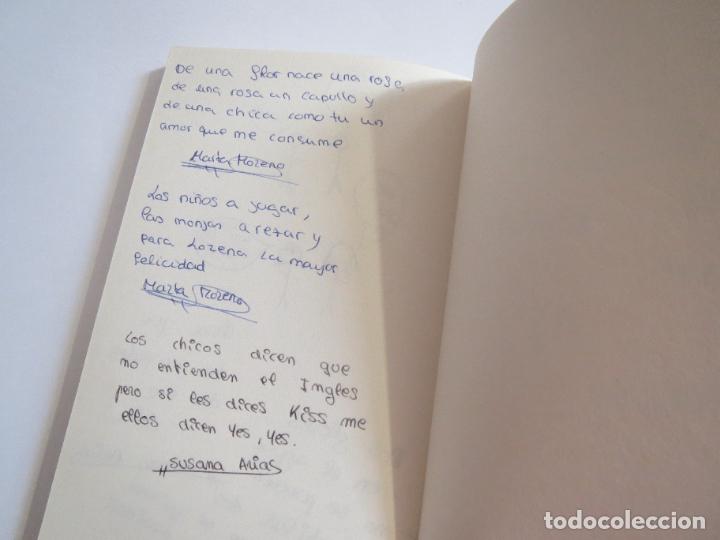 De una flor nace una rosa,
de una rosa un capullo y
de una chica como tu un
amor que me consume
Marta Moreno
Los niños a jugar,
las monjas a rezar y
para Lorena la mayor
felicidad
Marta Moreno
Los chicos dicen que
no entienden el Ingles
pero si les dices Kiss me
ellos dicen yes, yes.
SUSANA ARIAS
todocoleccion